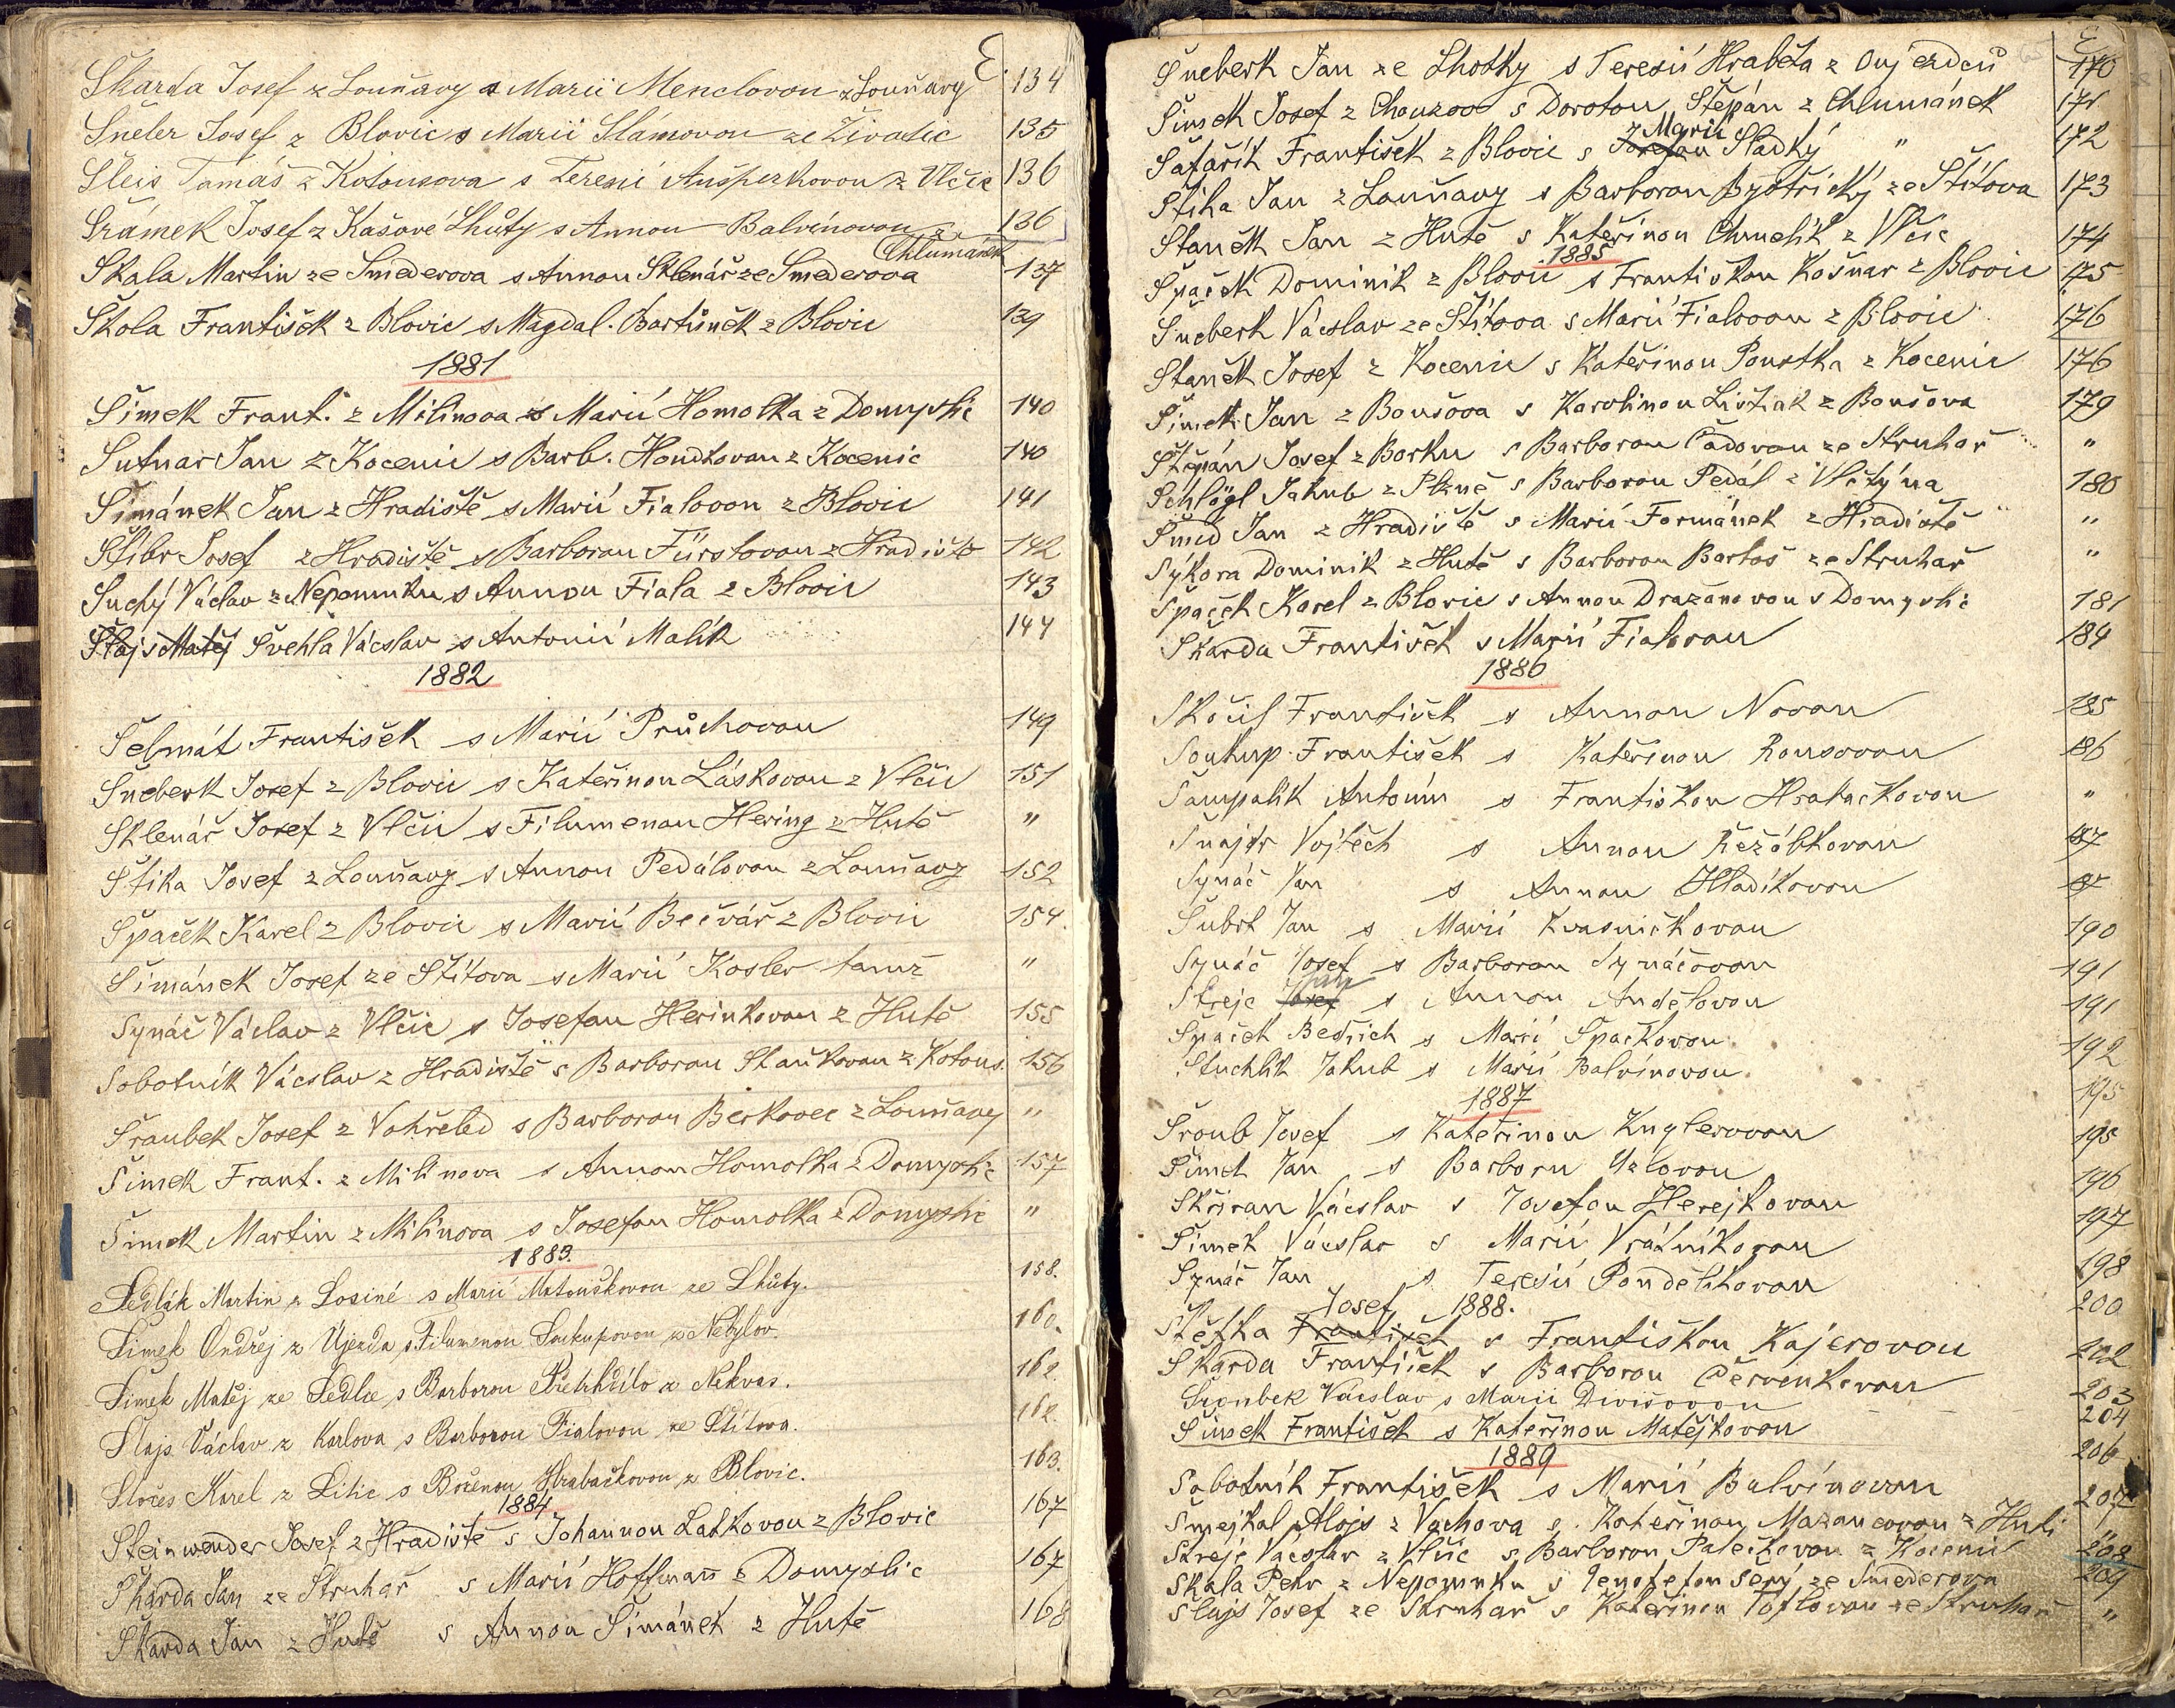 Č.
Škarda Josef z Louňavy s Marií Menclovou z Louňavy 134
Šneler Josef z Blovic s Marií Slámovou ze Živatic 135
Šleis Tomáš z Kotousova s Terezií Aušperkovou z Vlčic 136
Šrámek Josef z Kašové Lhůty s Annou Balvínovou z Chlumánek 136
Skala Martin ze Smederova s Annou Sklenář ze Smederova 137
Škola František z Blovic s Magdal. Bartůněk z Blovic 139
1881
Šimek Frant. z Milinova s Marií Homolka z Domyslic 140
Sutnar Jan z Kocenic s Barb. Houdkovou z Kocenic 140
Šimánek Jan z Hradiště s Marií Fialovou z Blovic 141
Stibr Josef z Hradiště s Barborou Fürstovou z Hradiště 142
Suchý Václav z Nepomuku s Annou Fiala z Blovic 143
Šlajs Matěj Švehla Vácslav s Antonií Malík 144
1882
Šelmát František s Marií Průchovou 149
Šneberk Josef z Blovic s Kateřinou Láskovou z Vlčic 151
Sklenář Josef z Vlčic s Filumenou Hering z Hutě "
Štika Josef z Louňavy s Annou Pedálovou z Louňavy 152
Špaček Karel z Blovic s Marií Bečvář z Blovic 154.
Šimánek Josef ze Štítova s Marií Kosler tamž "
Synáč Václav z Vlčic s Josefou Herinkovou z Hutě 155
Sobotník Vácslav z Hradiště s Barborou Staňkovou z Kotous. 156
Šroubek Josef z Vohřeled s Barborou Berkovec z Louňavy "
Šimek Frant. z Milinova s Annou Homolka z Domyslic 157
Šimek Martin z Milinova s Josefou Homolka z Domyslic "
1883.
Sedlák Martin z Losiné s Marií Matouškovou ze Lhůty. 158.
Šimek Ondřej z Újezda s Filumenou Soukupovou z Netylov. 160.
Šimek Matěj ze Sedlce s Barborou Přetrhdílo z Nekvas. 162.
Šlajs Václav z Karlova s Barborou Fialovou ze Štítova. 162.
Sločes Karel z Litic s Boženou Hrabačkovou z Blovic. 163.
1884
Steinwender Josef z Hradiště s Johannou Latkovou z Blovic 167
Škarda Jan ze Struhař s Marií Hoffmann z Domyslic 167
Škarda Jan z Hutě s Annou Šimánek z Hutě 168
Č
Šneberk Jan ze Lhotky s Terezií Hraběta z Oujezdců 170
Šimek Josef z Chouzov s Dorotou Štěpán z Chlumánek 171
Šafařík František z Blovic s Josefou z Marií Sladký " 172
Štika Jan z Louňavy s Barborou Bystřický ze Štítova 173
Staněk Jan z Hutě s Kateřinou Chmelík z Vlčic 174
1885
Špaček Dominik z Blovic s Františkou Košnar z Blovic 175
Šneberk Vácslav ze Štítova s Marií Fialovou z Blovic 176
Staněk Josef z Kocenic s Kateřinou Poustka z Kocenic 176
Šimek Jan z Boušova s Karolinou Lištiak z Boušova 179
Štěpán Josef z Borku s Barborou Čadovou ze Struhař "
Schlögl Jakub z Plzně s Barborou Pedál z Vlčtýna 180
Šmíd Jan z Hradiště s Marií Formánek z Hradiště "
Sýkora Dominik z Hutě s Barborou Bartoš ze Struhař "
Špaček Karel z Blovic s Annou Dražanovou s Domyslic 181
Škarda František s Marií Fialovou 184
1886
Skočil František s Annou Novou 185
Soukup František s Kateřinou Rousovou 186
Šampalík Antonín s Františkou Hrabačkovou "
Šnajdr Vojtěch s Annou Řežábkovou 187
Synáč Jan s Annou Hladíkovou 87
Šubrt Jan s Marií Kvasničkovou 190
Synáč Josef s Barborou Synáčovou 191
Streje Josef Jan s Annou Andělovou 191
Špaček Bedřich s Marií Špačkovou 192
Stuchlík Jakub s Marií Balvínovou. 195
1887
Šroub Josef s Kateřinou Kuglerovou 195
Šimek Jan s Barborou Uzlovou 196
Skřivan Vácslav s Josefou Herejkovou 197
Šimek Vácslav s Marií Vrátníkovou 198
Synáč Jan s Terezií Pondělíkovou 200
1888.
Štětka František Josef s Františkou Kajerovou 202
Škarda František s Barborou Červenkovou 203
Šroubek Vácslav s Marií Divišovou 204
Šimek František s Kateřinou Matějkovou 206
1889
Sobotník František s Marií Balvínovou 207
Šmejkal Alojs z Vachova s Kateřinou Mazancovou z Huti "
Streje Vácslav z Vlčic s Barborou Palečkovou z Kocenic 208
Skala Petr z Nepomuku s Genofefou Šerý ze Smederova 209
Šlajs Josef ze Struhař s Kateřinou Toflovou ze Struhař "